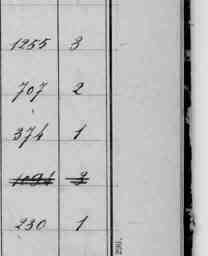 1255 3
707 2
374 1
1094 3
230 1